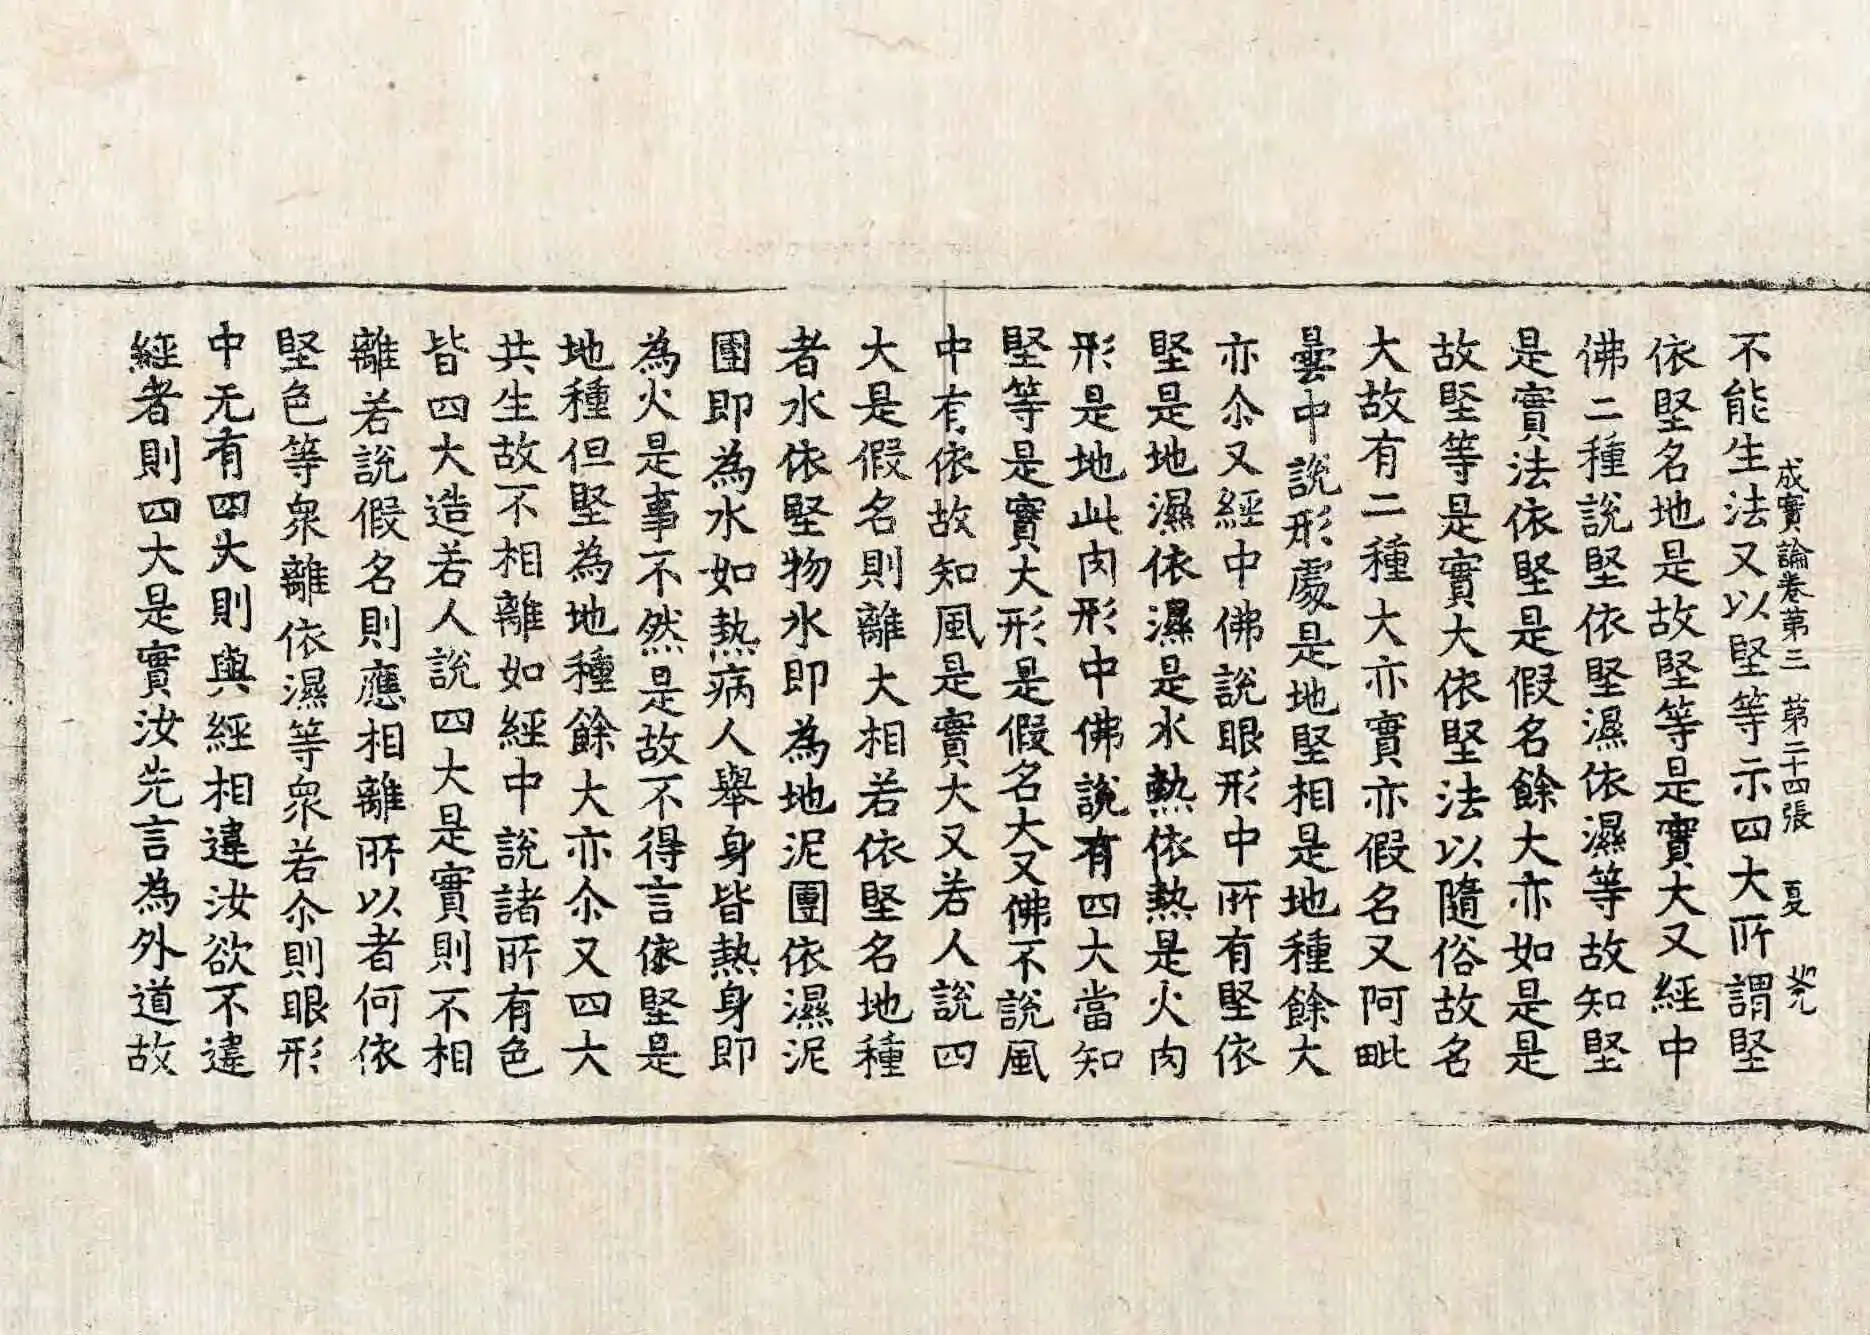 成實論卷第三 第二十四張 夏
不能生法又以堅等示四大所謂堅
依堅名地是故堅等是實大又經中
佛二種說堅依堅濕依濕等故知堅
是實法依堅是假名餘大亦如是是
故堅等是實大依堅法以隨俗故名
大故有二種大亦實亦假名又阿毗
曇中說形處是地堅相是地種餘大
亦尒又經中佛說眼形中所有堅依
堅是地濕依濕是水熱依熱是火肉
形是地此肉形中佛說有四大當知
堅等是實大形是假名大又佛不說風
中有依故知風是實大又若人說四
大是假名則離大相若依堅名地種
者水依堅物水即為地泥團依濕泥
團即為水如熱病人舉身皆熱身即
為火是事不然是故不得言依堅是
地種但堅為地種餘大亦尒又四大
共生故不相離如經中說諸所有色
皆四大造若人說四大是實則不相
離若說假名則應相離所以者何依
堅色等眾離依濕等眾若尒則眼形
中无有四大則與經相違汝欲不違
經者則四大是實汝先言為外道故